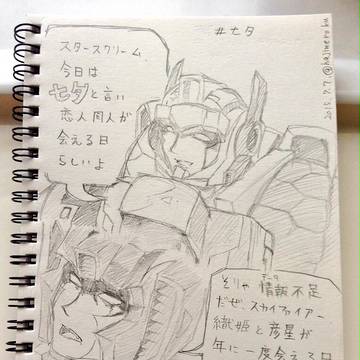 #七夕
2015.7.7.
スタースクリーム
今日は
七夕と言い
恋人同人が
会える日
らしいよ
そりゃ情報不足
データ
だぜ、スカイファイアー
織姫と彦星が
年に一度会える日